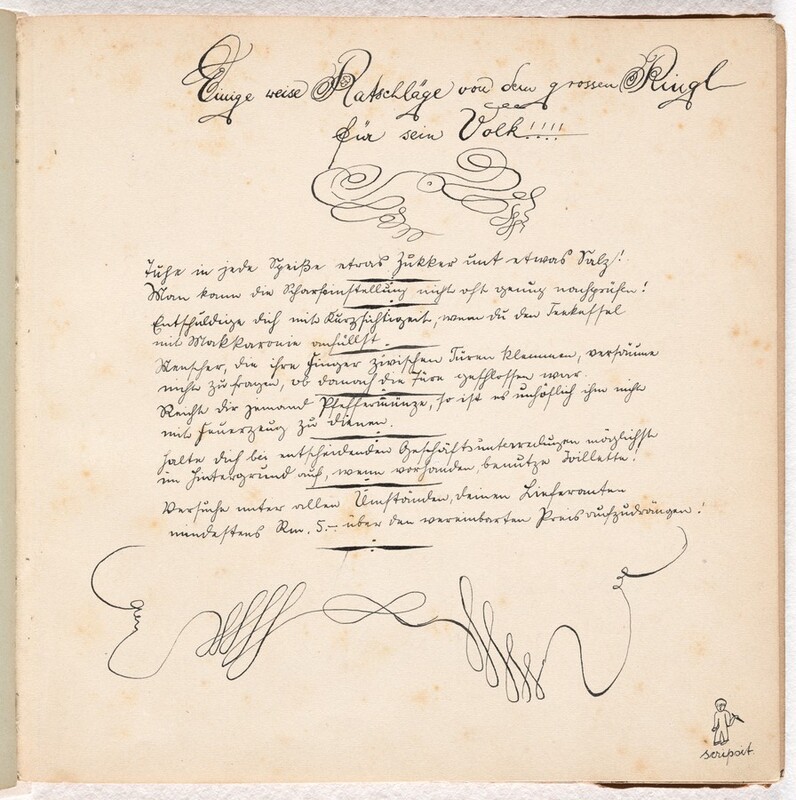 Einige weise Ratschläge von dem grossen Ringl
für sein Volk!!!!
Tuhe in jede Speiße etwas Zukker unt etwas Salz!
Man kann die Scharfeinstellung nicht oft genug nachprüfen!
Entschuldige dich mit Kurzsichtigkeit, wenn du den Teekessel
mit Makkaronie anfüllst.
Menscher, die ihre Finger zwischen Türen klemmen, versäume
nicht zu fragen, ob danach die Türe geschlossen war.
Reicht dir jemand Pfefferminze, so ist es unhöflich ihm nicht
mit Feuerzeug zu dienen.
Halte dich bei entscheidenden Geschäftsunterredungen möglichst
im Hintergrund auf, wenn vorhanden benutze Toillette!
Versuche unter allen Umständen, deinen Lieferanten
mindestens Rm. 5.– über den vereinbarten Preis aufzudrängen!
scripsit